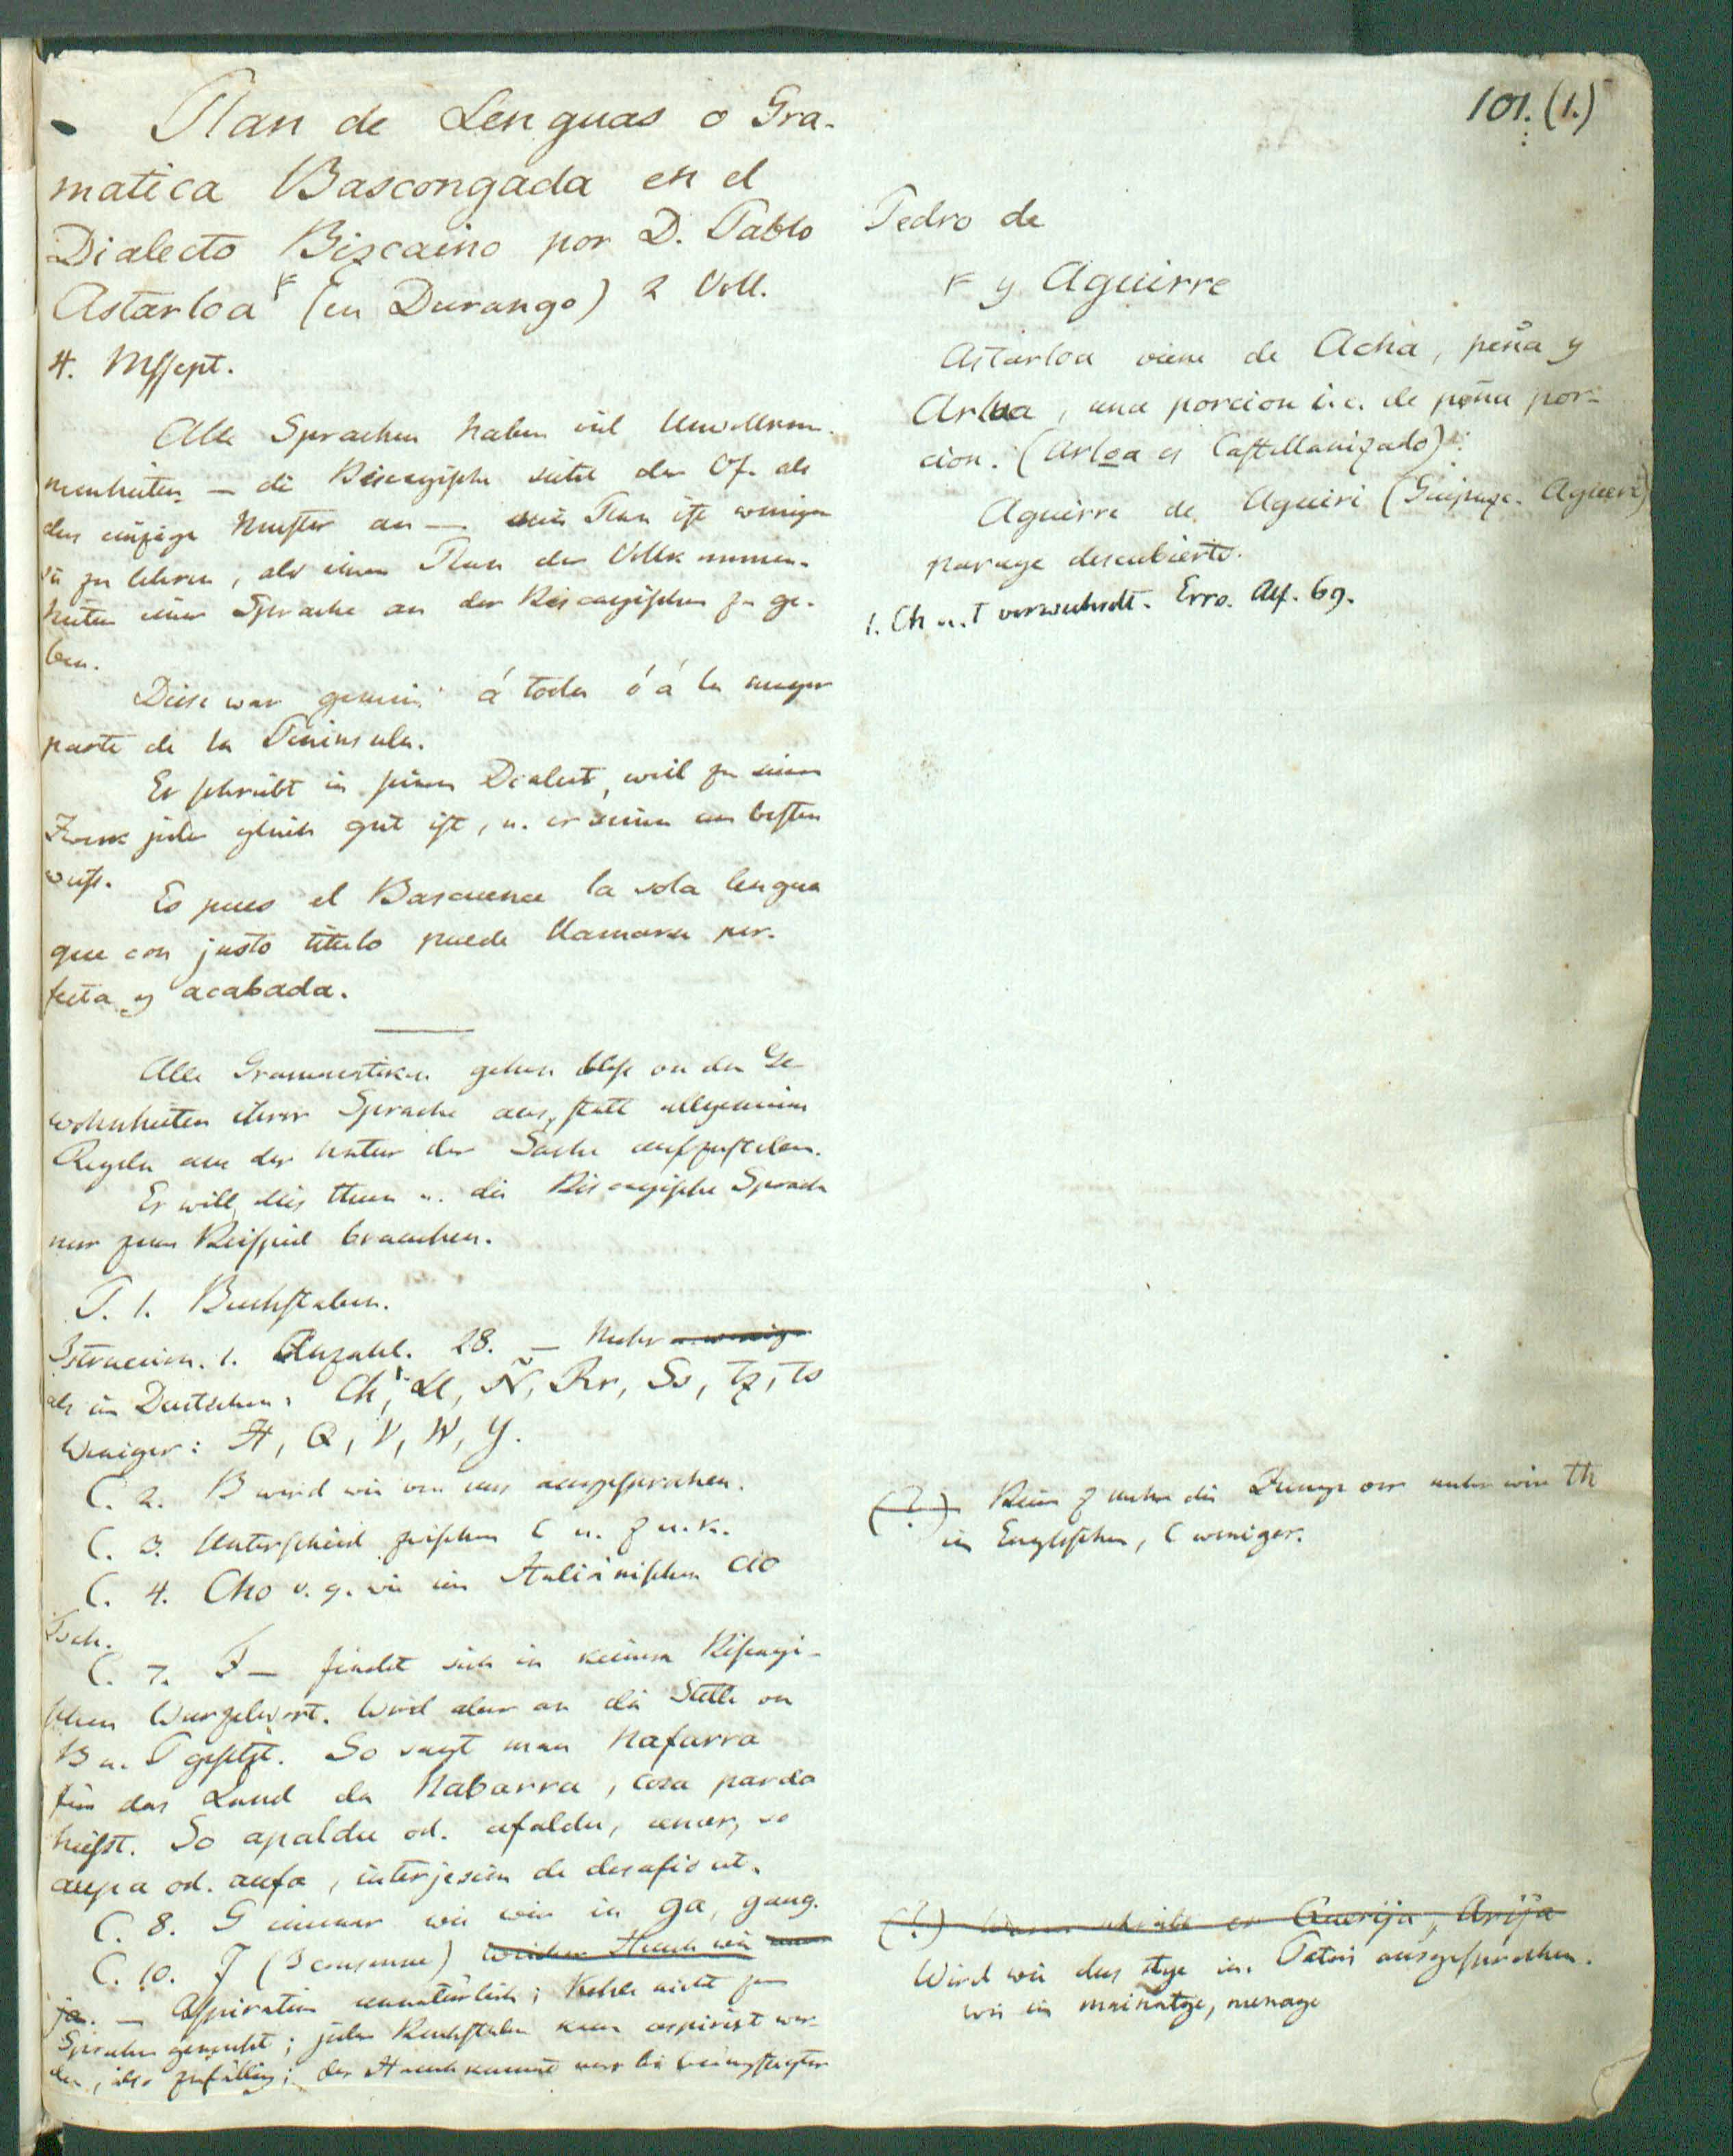 101. (1.)
Plan de Lenguas o Gra-
matica Bascongada en el
Dialecto Bizcaino por D. Pablo
Astarloa (en Durango) 2 Voll.
4. Mssept.
Alle Sprachen haben viel Unvollkom-
menheiten — die Biscayische sieht der Vf. als
das einzige Muster an — sein Plan ist weniger
sie zu lehren, als einen Plan der Vollkommen-
heiten einer Sprache an der Biscayischen zu ge-
ben.
Diese war gemein á toda ó á la mayor
parte de la Peninsula.
Er schreibt in seinem Dialect, weil zu seinem
Zweck jeder gleich gut ist, u. er seinen am besten
weiss.
Es pues el Bascuence la sola lengua
que con justo titulo puede llamarse per-
fecta y acabada.
Alle Grammatiken gehen bloss von den Ge-
wohnheiten ihrer Sprache aus, statt allgemeine
Regeln aus der Natur der Sache aufzustellen.
Er will dies thun u. die Biscayische Sprache
nur zum Beispiel brauchen.
P. 1. Buchstaben.
Istruccion. 1. Anzahl. 28. — Mehr u. weniger
als im Deutschen: Ch, Ll, Ñ, Rr, Ss, Tz, Ts
Weniger: H, Q, V, W, Y.
C. 2. B wird wie von uns ausgesprochen.
C. 3. Unterschied zwischen C u. Z u. K.
C. 4. Cho v. g. wie im Italiänischen cio
Tsch.
C. 7. F — findet sich in keinem Biscayi-
schen Wurzelwort. Wird aber an die Stelle von
B u. P gesetzt. So sagt man Nafarra
für das Land da Nabarra, cosa parda
heisst. So apaldu od. afaldu, cenar, so
aupa od. aufa, interjecion de desafio etc.
C. 8. G immer wie wir in ga, gang.
C. 10. J (I consonne) weicher Hauch wie
ja. — Aspiration unnatürlich; Kehle nicht zum
Sprechen gemacht; jeder Buchstabe kann aspirirt wer-
den, also zufällig; der Hauch kommt nur bei beängstigter
Pedro de
y Aguirre
Astarloa viene de Acha, peña y
Arloa, una porcion i.e. de peña por-
cion. (Arloa es Castellanizado)
Aguirre de Aguiri (Guipuzc. Agueri)
parage descubierto.
1. Ch u. T verwechselt. Erro. Alf. 69.
(?) Beim Z mehr die Zunge vor mehr wie th
im Englischen, C weniger.
(?) Wenn schreibt er Querija, Arija
Wird wie das tge im Patois ausgesprochen.
wie in mainatge, menage